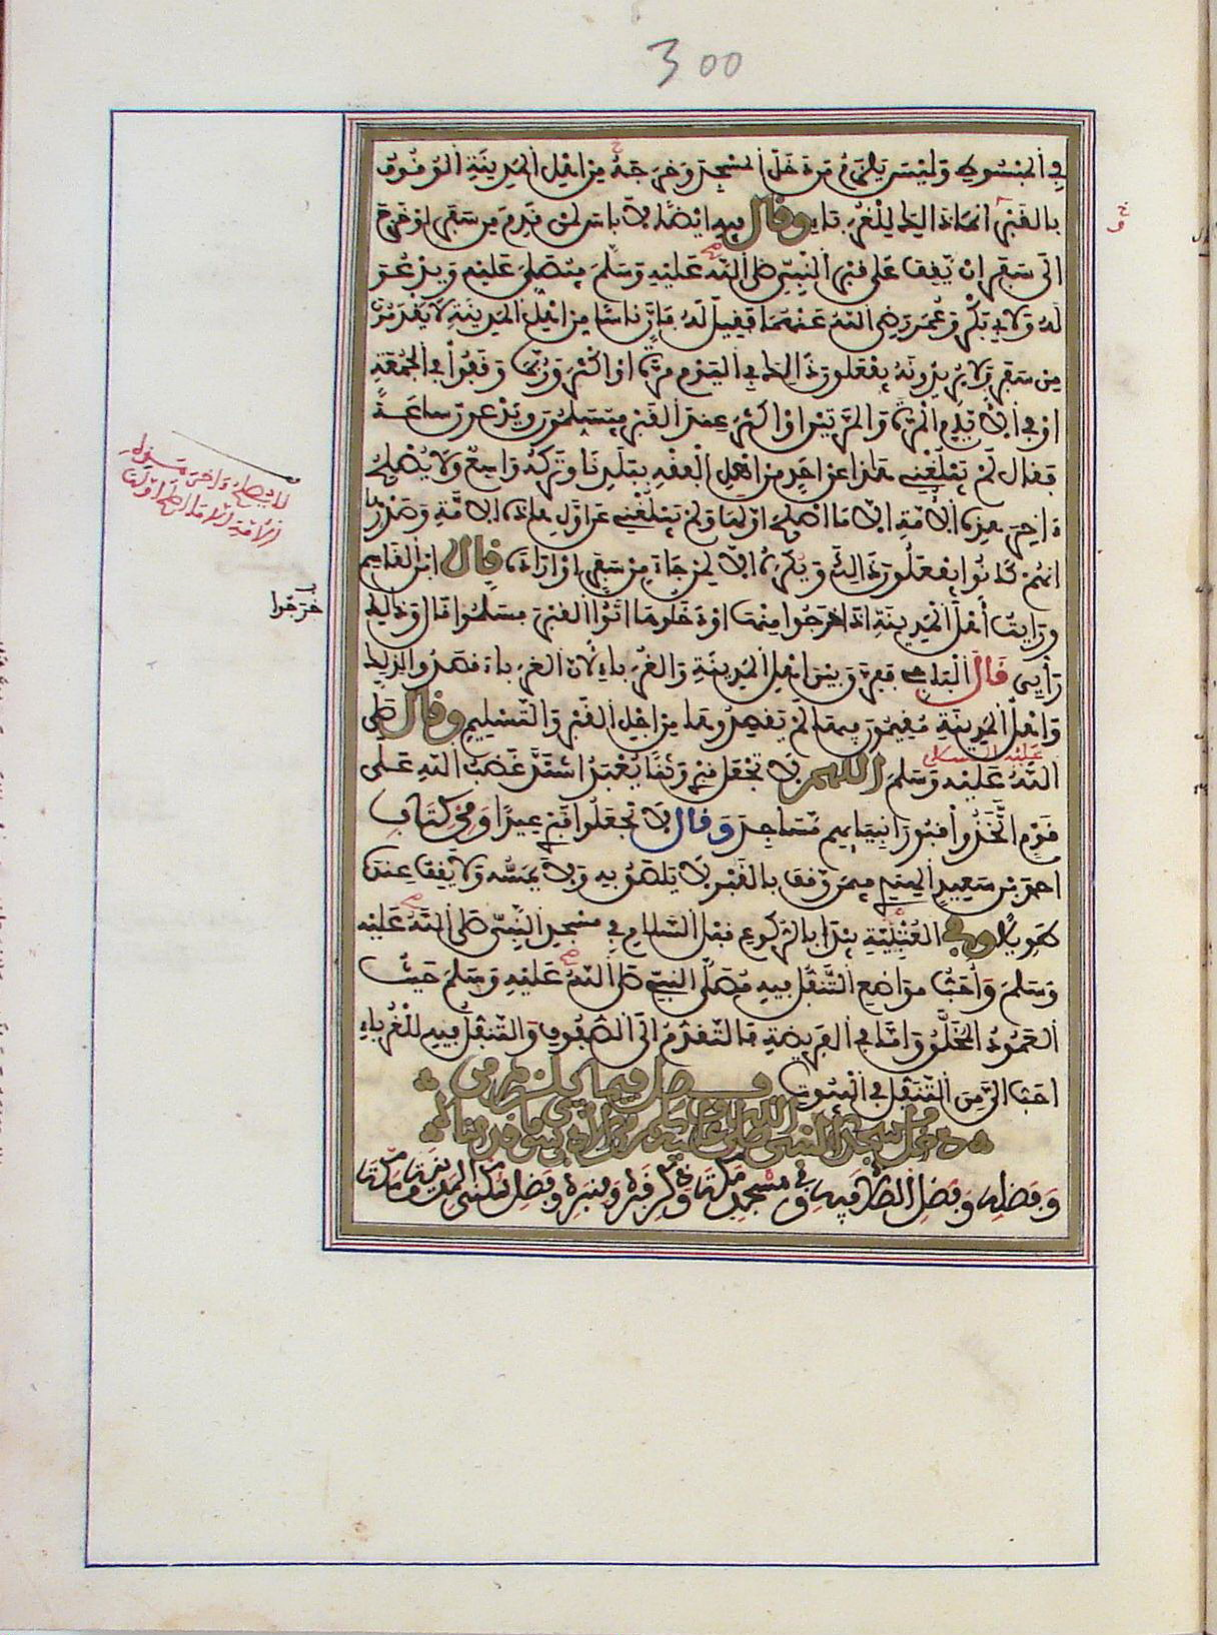 300
في المبسوط وليس يلزم من دخل المسجد وخرج منه من اهل المدينة الوقوف
بالقبر انما ذالك للغرباء وقال فيه ايضا لا باس لمن قدم من سفر او خرج
الى سفر ان يقف على قبر النبي صلى الله عليه وسلم فيصلي عليه ويدعو
له ولابي بكر وعمر رضي الله عنهما فقيل له فان ناسا من اهل المدينة لا يقدمون
من سفر ولا يريدونه يفعلون ذالك في اليوم مرة او اكثر وربما وقفوا في الجمعة
او في الايام المرة والمرتين او اكثر عند القبر فيسلمون ويدعون ساعة
فقال لم يبلغني هذا عن احد من اهل الفقه ببلدنا وتركه واسع ولا يصلح
ءاخر هذه الامة الا ما اصلح اولها ولم يبلغني عن اول هذه الامة وصدرها
انهم كانوا يفعلون ذالك ويكره الا لمن جاء من سفر او اراده قال ابن القاسم
ورايت اهل المدينة اذا خرجوا منها او دخلوها اتوا القبر فسلموا قال وذالك
رأيي قال الباجي ففرق بين اهل المدينة والغرباء لان الغرباء قصدوا لذلك
واهل المدينة مقيمون بها لم يقصدوها من اجل القبر والتسليم وقال صلى
عليه السلام
الله عليه وسلم اللهم لا تجعل قبري وثنا يعبد اشتد غضب الله على
قوم اتخذوا قبور انبيائهم مساجد وقال لا تجعلوا قبري عيدا ومن كتاب
احمد بن سعيد الهندي فيمن وقف بالقبر لا يلصق به ولا يمسه ولا يقف عنده
طويلا وفي العتبية يبدا بالركوع قبل السلام في مسجد النبي صلى الله عليه
وسلم واحب مواضع التنفل فيه مصلى النبي صلى الله عليه وسلم حيث
العمود المخلق واما في الفريضة فالتقدم الى الصفوف والتنفل فيه للغرباء
احب الي من التنفل في البيوت فصل فيما يلزم من
دخل مسجد النبي صلى الله عليه وسلم من الادب سوى ما قدمناه
وفضله وفضل الصلاة فيه وفي مسجد مكة وذكر قبره ومنبره وفضل سكنى المدينة ومكة
خرجوا